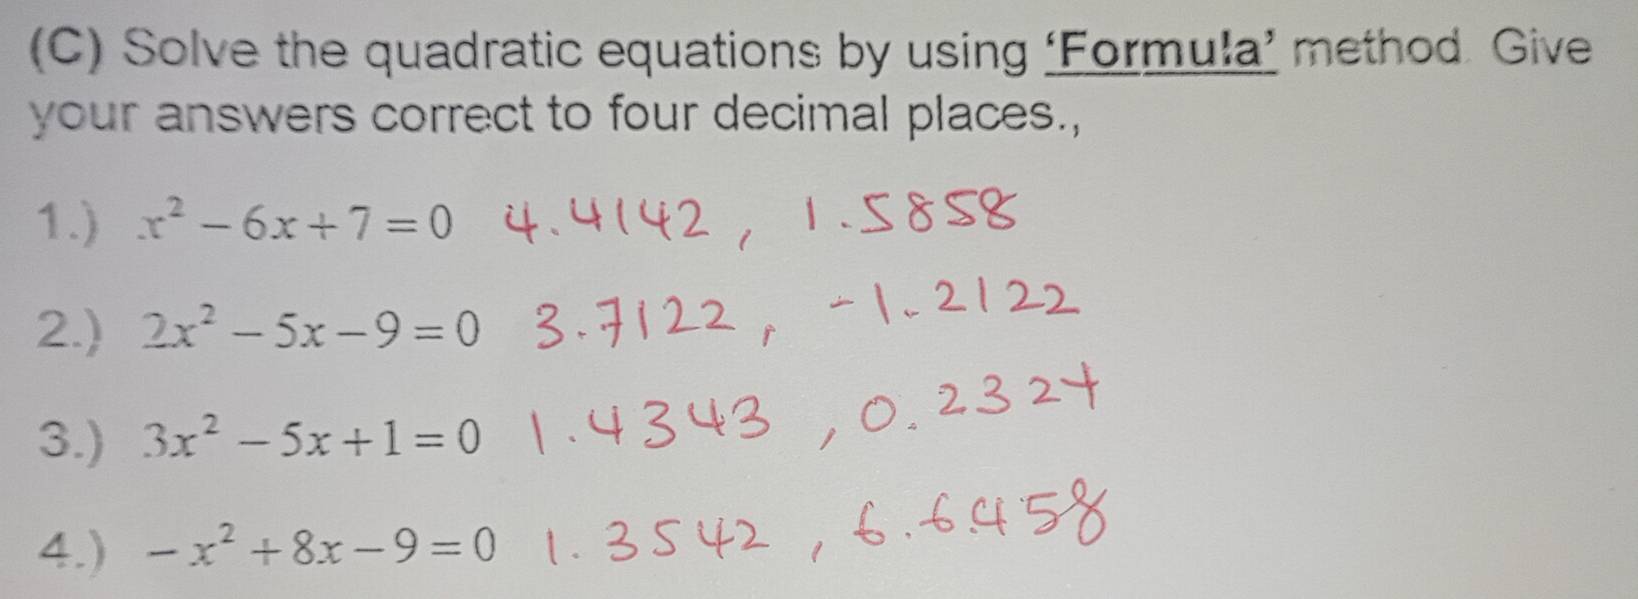 (C) Solve the quadratic equations by using ‘Formula’ method. Give
your answers correct to four decimal places.,
1.) x² – 6x + 7 = 0 4.4142, 1.5858
2.) 2x² – 5x – 9 = 0 3.7122, -1.2122
3.) 3x² – 5x + 1 = 0 1.4343, 0.2324
4.) – x² + 8x – 9 = 0 1.3542, 6.6458